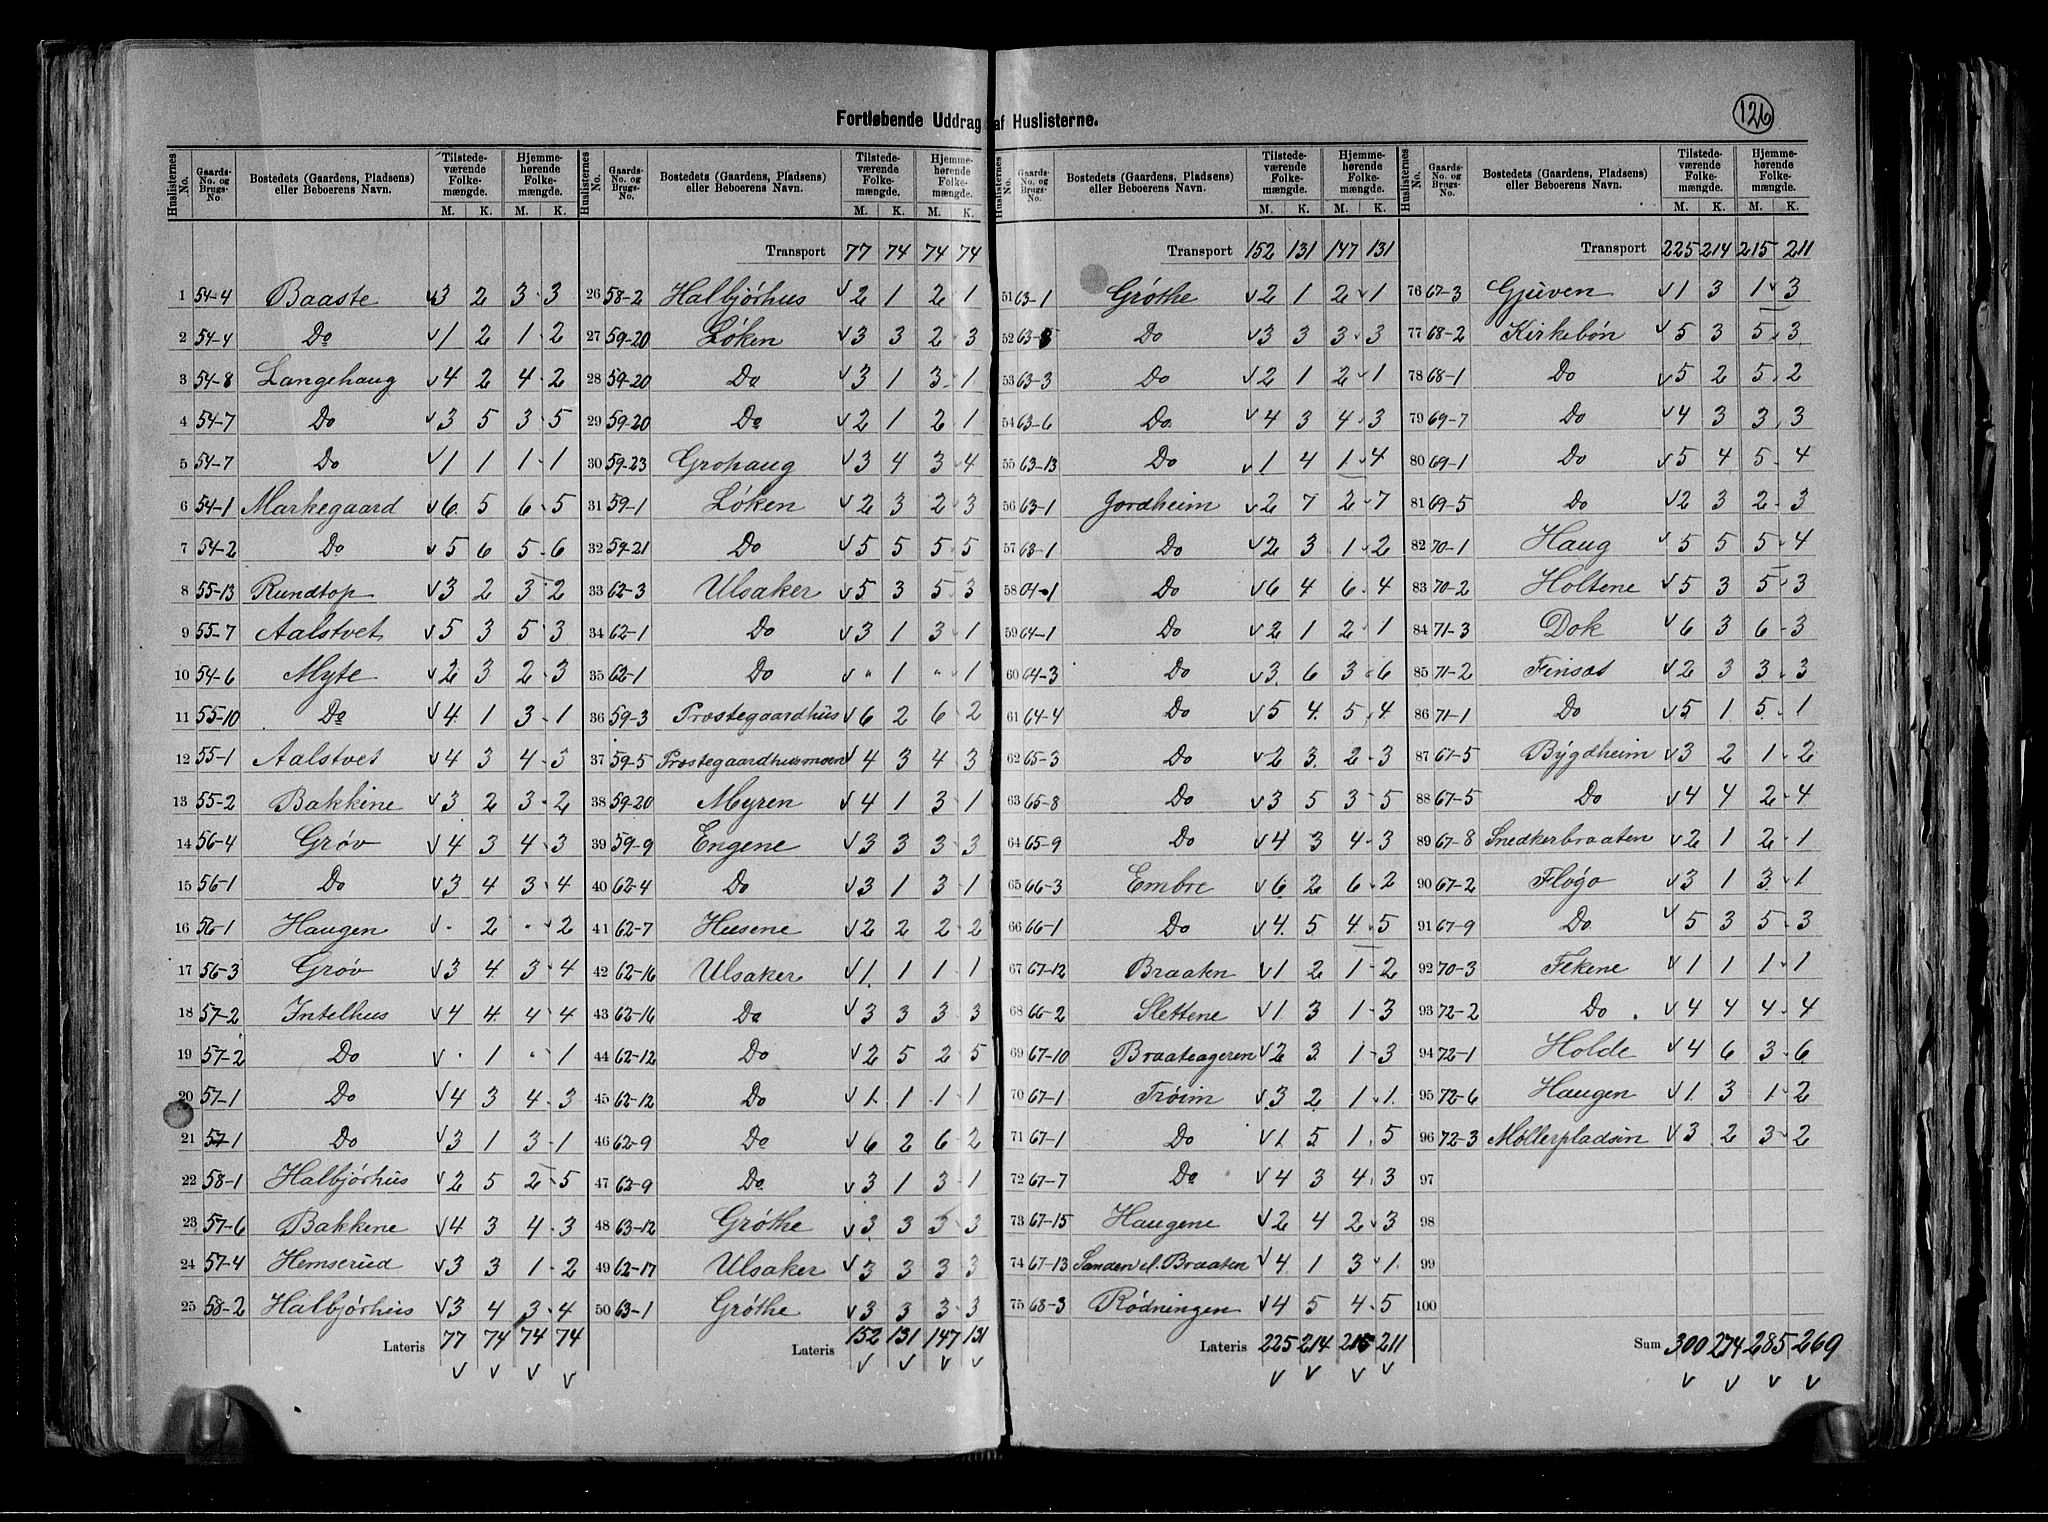 126
Fortløbende Uddrag af Huslisterne.
Huslisternes No. Gaards-No. og Brugs-No. Bostedets (Gaardens, Pladsens) eller Beboerens Navn. Tilstedeværende Folkemængde. M. K. Hjemmehørende Folkemængde. M. K.
1 54-4 Baaste 3 2 3 3
2 54-4 Do 1 2 1 2
3 54-8 Langehaug 4 2 4 2
4 54-7 Do 3 5 3 5
5 54-7 Do 1 1 1 1
6 54-1 Markegaard 6 5 6 5
7 54-2 Do 5 6 5 6
8 55-13 Rundtop 3 2 3 2
9 55-7 Aalstvet 5 3 5 3
10 54-6 Myte 2 3 2 3
11 55-10 Do 4 1 3 1
12 55-1 Aalstvet 4 3 4 3
13 55-2 Bakkine 3 2 3 2
14 56-4 Grøv 4 3 4 3
15 56-1 Do 3 4 3 4
16 56-1 Haugen . 2 . 2
17 56-3 Grøv 3 4 3 4
18 57-2 Intelhus 4 4 4 4
19 57-2 Do . 1 . 1
20 57-1 Do 4 3 4 3
21 57-1 Do 3 1 3 1
22 58-1 Halbjørhus 2 5 2 5
23 57-6 Bakkene 4 3 4 3
24 57-4 Hemserud 3 3 1 2
25 58-2 Halbjørhus 3 4 3 4
Lateris 77 74 74 74
Huslisternes No. Gaards-No. og Brugs-No. Bostedets (Gaardens, Pladsens) eller Beboerens Navn. Tilstedeværende Folkemængde. M. K. Hjemmehørende Folkemængde. M. K.
Transport 77 74 74 74
26 58-2 Halbjørhus 2 1 2 1
27 59-20 Løken 3 3 2 3
28 59-20 Do 3 1 3 1
29 59-20 Do 2 1 2 1
30 59-23 Grohaug 3 4 3 4
31 59-1 Løken 2 3 2 3
32 59-21 Do 5 5 5 5
33 62-3 Ulsaker 5 3 5 3
34 62-1 Do 3 1 3 1
35 62-1 Do " 1 " 1
36 59-3 Prostegaardhus 6 2 6 2
37 59-5 Prostegaardhusmoen 4 3 4 3
38 59-20 Myren 4 1 3 1
39 59-9 Engene 3 3 3 3
40 62-4 Do 3 1 3 1
41 62-7 Husene 2 2 2 2
42 62-16 Ulsaker 1 1 1 1
43 62-16 Do 3 3 3 3
44 62-12 Do 2 5 2 5
45 62-12 Do 1 1 1 1
46 62-9 Do 6 2 6 2
47 62-9 Do 3 1 3 1
48 63-12 Grøthe 3 3 3 3
49 62-17 Ulsaker 3 3 3 3
50 63-1 Grøthe 3 3 3 3
Lateris 152 131 147 131
Huslisternes No. Gaards-No. og Brugs-No. Bostedets (Gaardens, Pladsens) eller Beboerens Navn. Tilstedeværende Folkemængde. M. K. Hjemmehørende Folkemængde. M. K.
Transport 152 131 147 131
51 63-1 Grøthe 2 1 2 1
52 63-5 Do 3 3 3 3
53 63-3 Do 2 1 2 1
54 63-6 Do 4 3 4 3
55 63-13 Do 1 4 1 4
56 63-1 Jordheim 2 7 2 7
57 68-1 Do 2 3 1 2
58 64-1 Do 6 4 6 4
59 64-1 Do 2 1 2 1
60 64-3 Do 3 6 3 6
61 64-4 Do 5 4 5 4
62 65-3 Do 2 3 2 3
63 65-8 Do 3 5 3 5
64 65-9 Do 4 3 4 3
65 66-3 Embre 6 2 6 2
66 66-1 Do 4 5 4 5
67 67-12 Braaten 1 2 1 2
68 66-2 Slettene 1 3 1 3
69 67-10 Braateageren 2 3 1 3
70 67-1 Trøim 3 2 1 1
71 67-1 Do 1 5 1 5
72 67-7 Do 4 3 4 3
73 67-15 Haugene 2 4 2 3
74 67-13 Sanden el. Braaten 4 1 3 1
75 68-3 Rødningen 4 5 4 5
Lateris 225 214 215 211
Huslisternes No. Gaards-No. og Brugs-No. Bostedets (Gaardens, Pladsens) eller Beboerens Navn. Tilstedeværende Folkemængde. M. K. Hjemmehørende Folkemængde. M. K.
Transport 225 214 215 211
76 67-3 Gjuven 1 3 1 3
77 68-2 Kirkebøn 5 3 5 3
78 68-1 Do 5 2 5 2
79 69-7 Do 4 3 3 3
80 69-1 Do 5 4 5 4
81 69-5 Do 2 3 2 3
82 70-1 Haug 5 5 5 4
83 70-2 Holtene 5 3 5 3
84 71-3 Dok 6 3 6 3
85 71-2 Finset 2 3 3 3
86 71-1 Do 5 1 5 1
87 67-5 Bygdheim 3 2 1 2
88 67-5 Do 4 4 2 4
89 67-8 Snedkerbraaten 2 1 2 1
90 67-2 Fløgo 3 1 3 1
91 67-9 Do 5 3 5 3
92 70-3 Fekene 1 1 1 1
93 72-2 Do 4 4 4 4
94 72-1 Holde 4 6 3 6
95 72-6 Haugen 1 3 1 2
96 72-3 Møllerpladsin 3 2 3 2
97
98
99
100
Sum 300 274 285 269